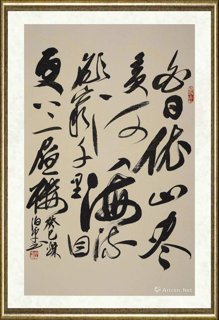 白日依山尽
黄河入海流
欲穷千里目
更上一层楼
癸巳深